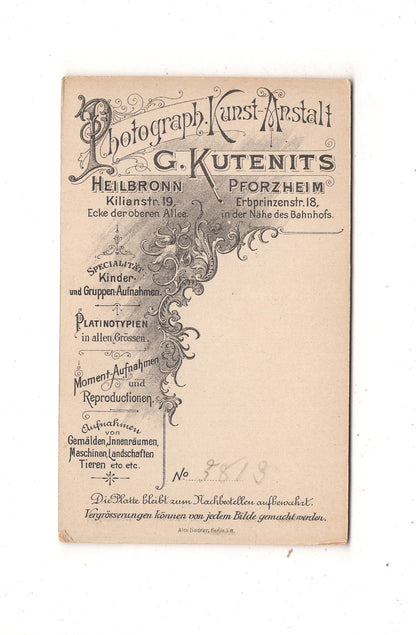 Photograph. Kunst-Anstalt
G. KUTENITS
HEILBRONN PFORZHEIM
Kilianstr. 19, Erbprinzenstr. 18,
Ecke der oberen Allee. in der Nähe des Bahnhofs.
SPECIALITÄT:
Kinder-
und Gruppen-Aufnahmen.
PLATINOTYPIEN
in allen Grössen.
Moment-Aufnahmen
und
Reproductionen.
Aufnahmen
von
Gemälden, Innenräumen,
Maschinen, Landschaften
Tieren etc. etc.
No 3813
Die Platte bleibt zum Nachbestellen aufbewahrt.
Vergrösserungen können von jedem Bilde gemacht werden.